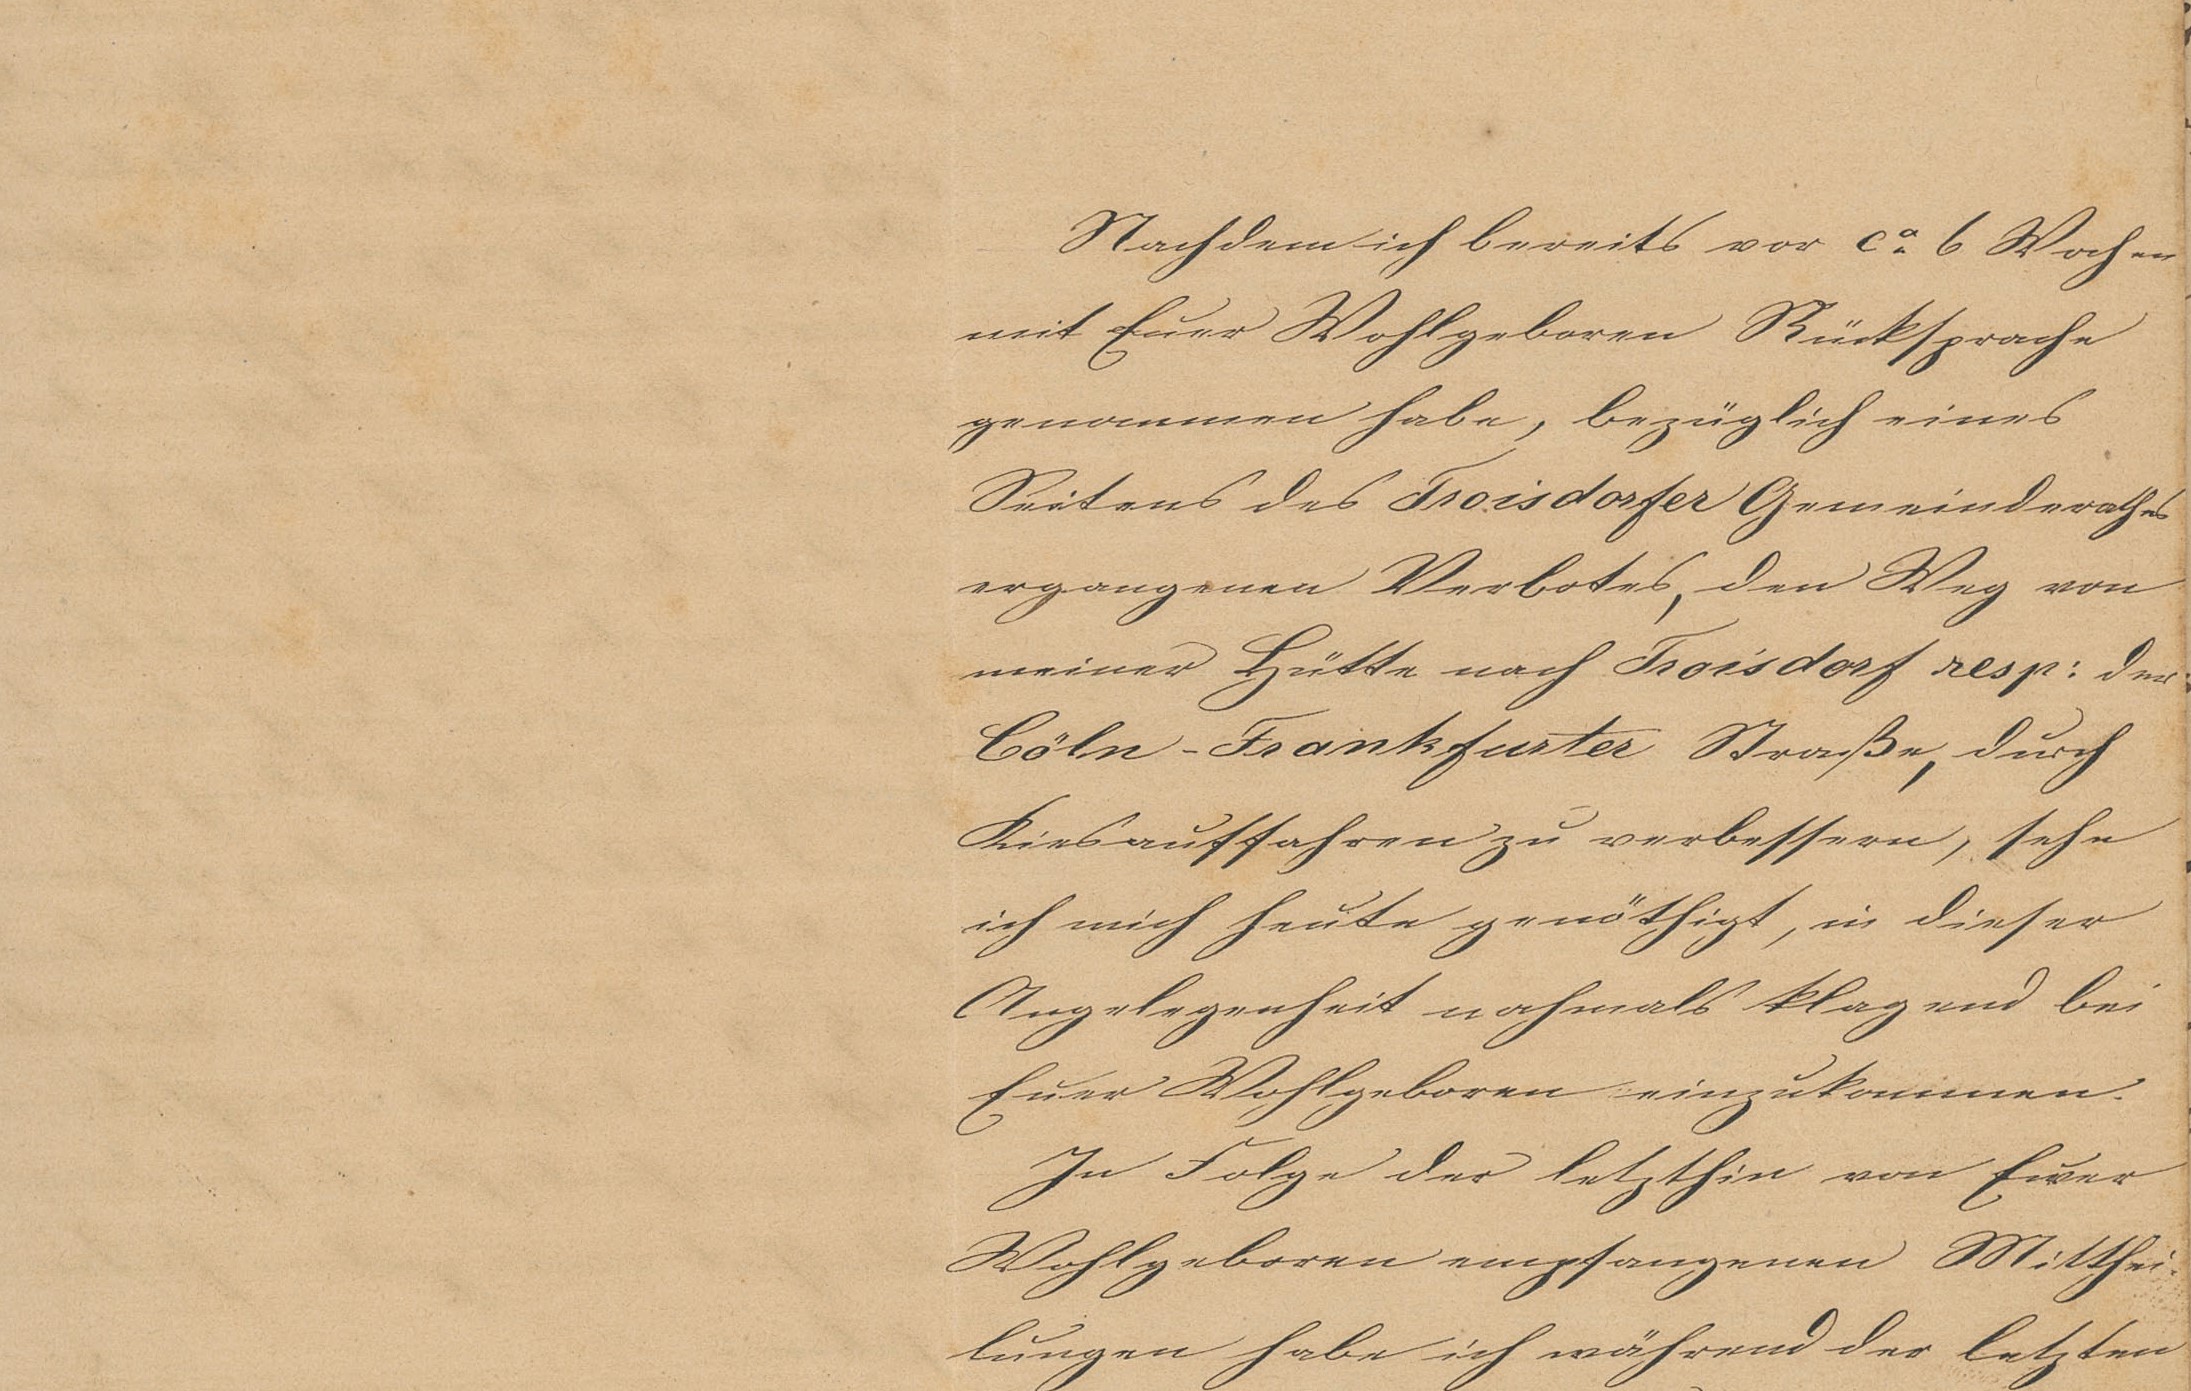 Nachdem ich bereits vor ca. 6 Wochen
mit Euer Wohlgeboren Rücksprache
genommen habe, bezüglich eines
Seitens des Troisdorfer Gemeinderathes
ergangenen Verbotes, den Weg von
meiner Hütte nach Troisdorf resp: der
Cöln-Frankfurter Straße, durch
Kiesauffahren zu verbessern, sehe
ich mich heute genöthigt, in dieser
Angelegenheit nochmals klagend bei
Euer Wohlgeboren einzukommen.
In Folge der letzthin von Euer
Wohlgeboren empfangenen Mitthei-
lungen habe ich während der letzten